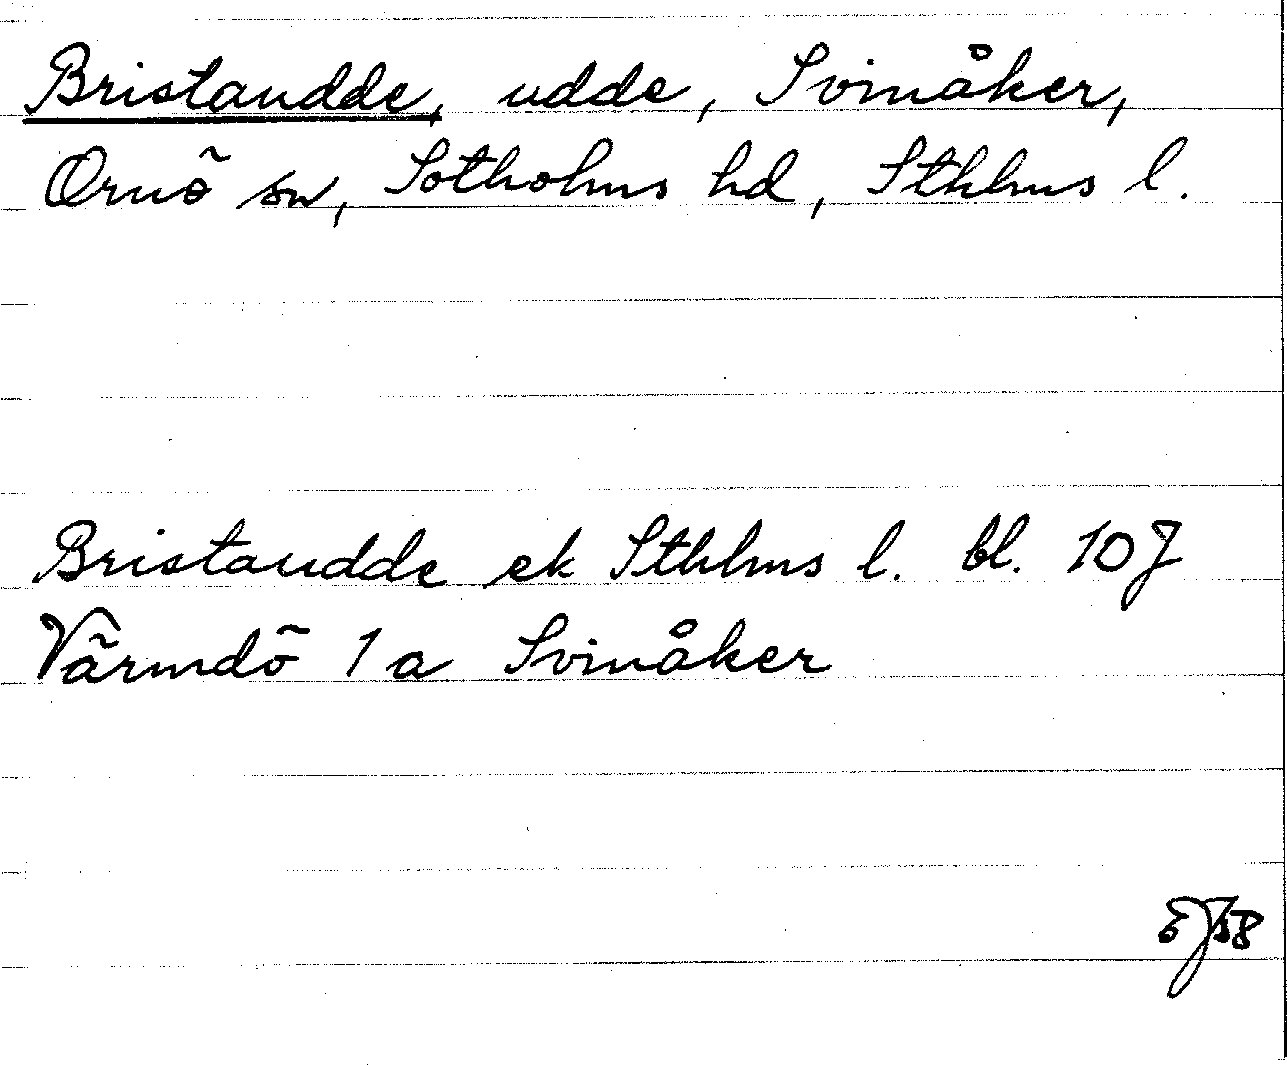 Bristaudde, udde, Svinåker,
Ornö sn, Sotholms hd, Sthlms l.
Bristaudde ek Sthlms l. bl. 10J
Värmdö 1a Svinåker